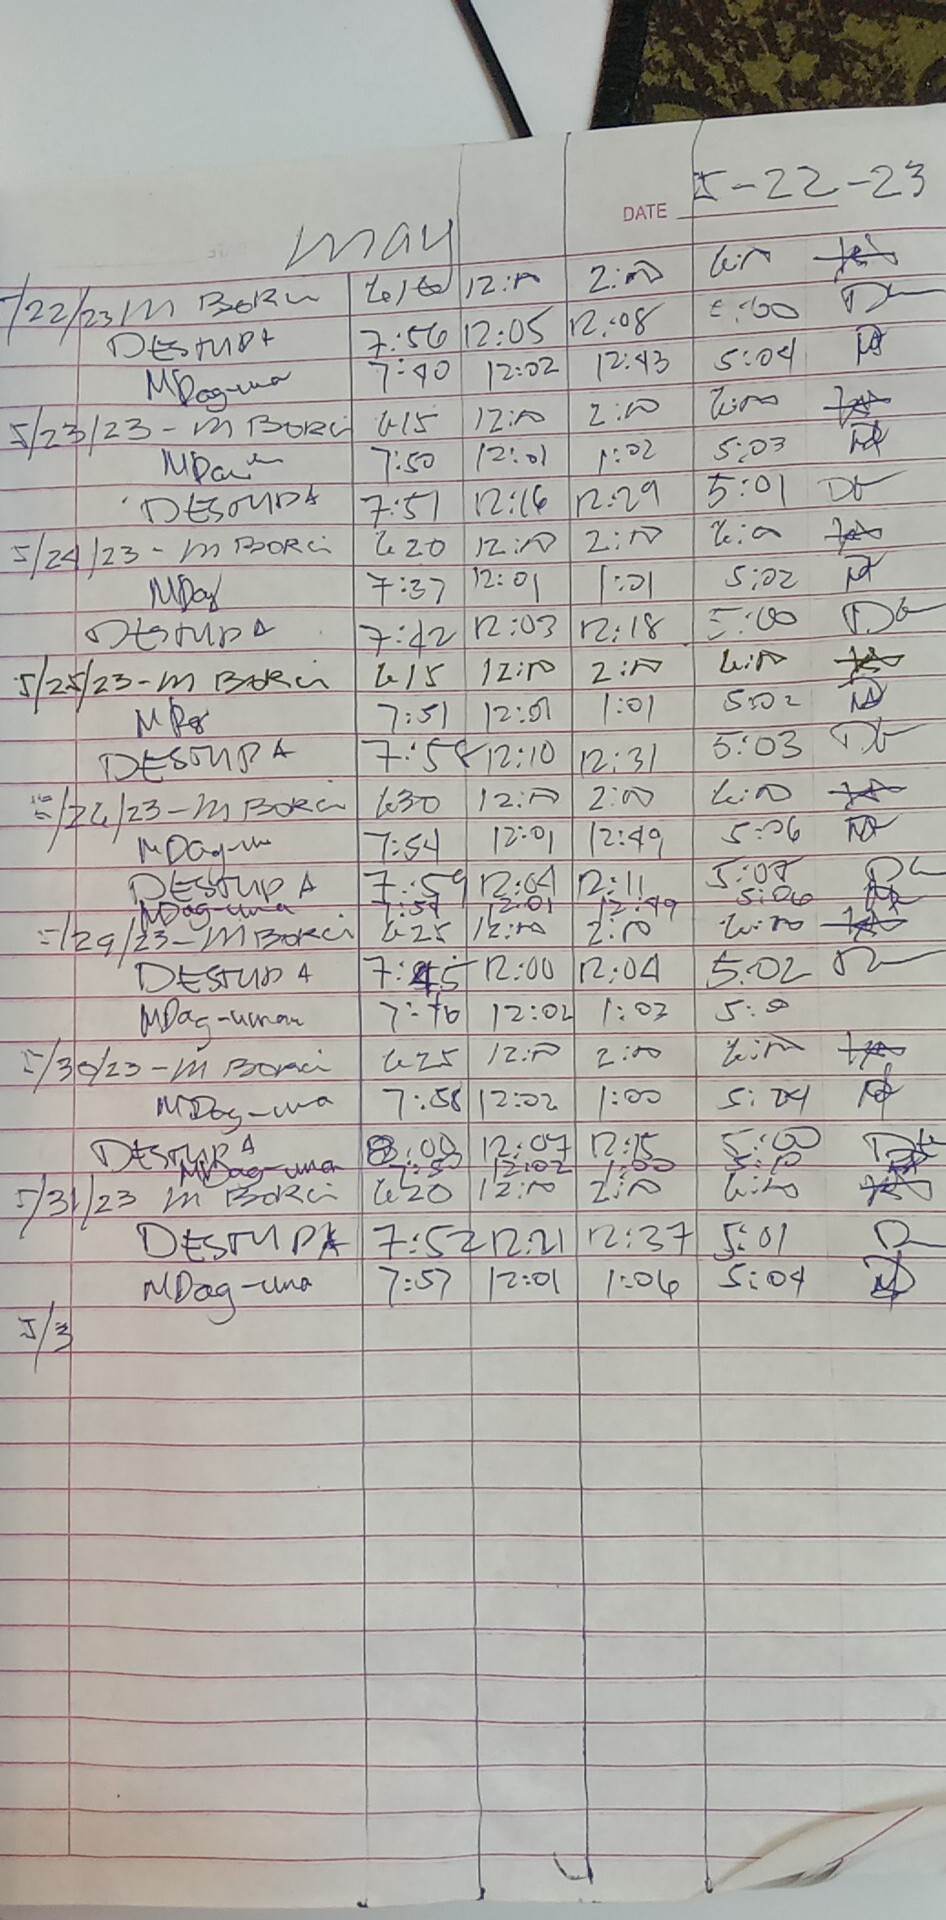 DATE 5-22-23
May
5/22/23 M BORCI 12:00 2:00
DESTUPA 7:56 12:05 12:08 5:00
MDag-uma 7:40 12:02 12:43 5:04
5/23/23 - M BORCI 615 12:00 2:00 6:00
7:50 12:01 1:02 5:03
DESTUPA 7:51 12:16 12:29 5:01
5/24/23 - M BORCI 620 12:00 2:00 6:00
MDag 7:37 12:01 1:01 5:02
DESTUPA 7:42 12:03 12:18 5:00
5/25/23 - M BORCI 615 12:00 2:00 6:00
7:51 12:01 1:01 5:02
DESTUPA 7:58 12:10 12:31 5:03
5/26/23 - M BORCI 630 12:00 2:00 6:00
MDag-um 7:54 12:01 12:49 5:06
DESTUPA 7:59 12:04 12:11
MDag-uma 12:01 12:49 5:06
5/29/23 - M BORCI 625 12:00 2:00 6:00
DESTUPA 7:45 12:00 12:04 5:02
MDag-uman 12:02 1:03
5/30/23 - M BORCI 625 12:00 2:00 6:00
MDag-uma 7:58 12:02 1:00 5:04
DESTUPA 8:00 12:07 12:15 5:00
MDag-uma 12:02 1:00
5/31/23 M BORCI 620 12:00 2:00 6:00
DESTUPA 7:52 12:21 12:37 5:01
MDag-uma 7:57 12:01 1:06 5:04
5/3